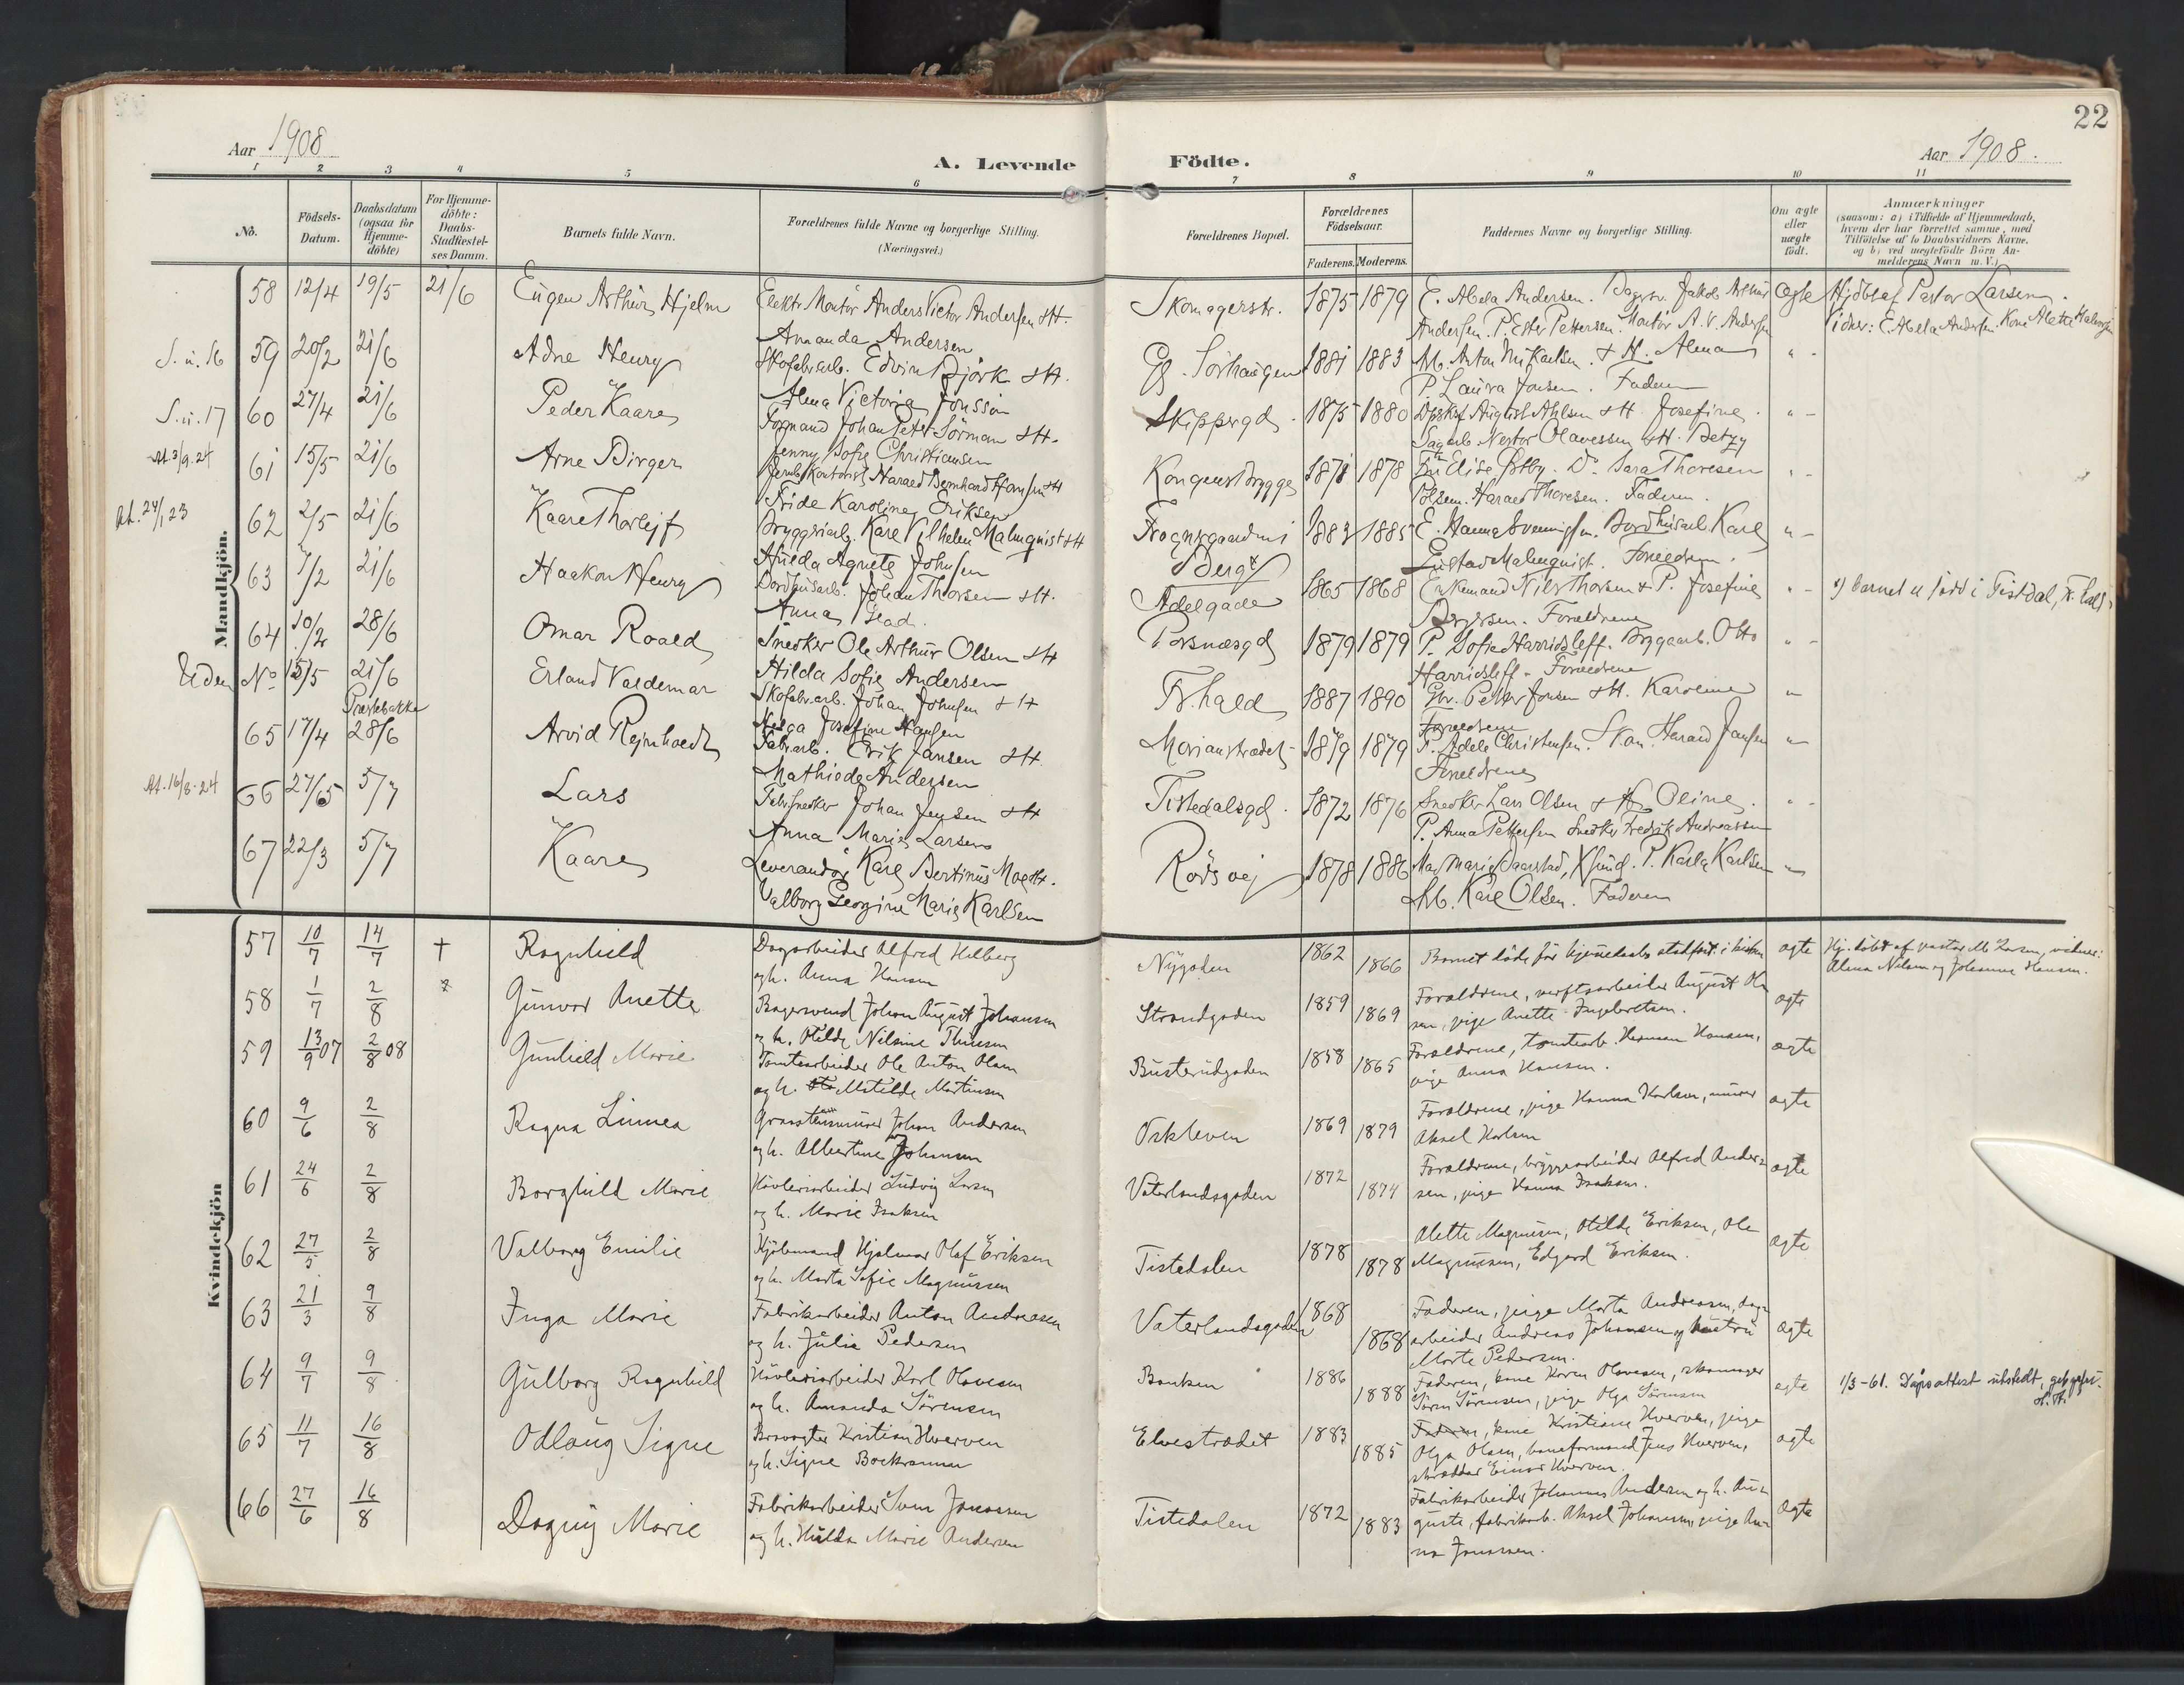 22
Aar 1908
A. Levende Födte.
Aar 1908.
1 2 3 4 5 6 7 8 9 10 11
No.
Födsels-Datum.
Daabsdatum (ogsaa for Hjemme-döbte)
For Hjemme-döbte: Daabs-Stadfæstel-ses Datum.
Barnets fulde Navn.
Forældrenes fulde Navne og borgerlige Stilling. (Næringsvei.)
Forældrenes Bopæl.
Forældrenes Födselsaar.
Faderens. Moderens.
Faddernes Navne og borgerlige Stilling.
Om ægte eller uægte födt.
Anmærkninger
(saasom: a) i Tilfælde af Hjemmedaab, hvem der har forrettet samme, med Tilföielse af to Daabsvidners Navne, og b) ved uægtefödte Börn An-melderens Navn m. V.)
Mandkjön.
58 12/4 19/5 21/6 Eugen Arthur Hjelm
Elektr. Montör Anders Victor Andersen & H.
Amanda Andersen
Skomagerstr. 1875 1879
E. Abela Andersen. Jakob Arthur
Andersen. P. Ester Pettersen. Montör A. V. Andersen
Ægte
Hjdbt af Pastor Larsen.
59 20/2 21/6 Adne Henry
Skofabrarb. Edvin Björk & H.
Alma Victoria Jonsson
1881 1883
Arb. Anton Mikaelsen & H. Alma
P. Laura Jonsen. Faderen
60 27/4 21/6 Peder Kaare
Formand Johan Peter Sörman & H.
Jenny Sofie Christiansen
Skippergd. 1875 1880
August Ahlsen & H. Josefine.
Sagarb. Nestor Olavessen & H. Betzy
At. 3/9.24
61 15/5 21/6 Arne Birger
Jernb. Kontorist Harald Bernhard Hansen & H
Fride Karoline Eriksen
Kongens Brygge 1878
Frú Elise Östby. Do. Sara Thoresen
Harald Thoresen. Faderen.
At. 24/1 23
62 2/5 21/6 Kaare Thorleif
Bryggeriarb. Karl Vilhelm Malmquist & H
Hulda Agnete Johnsen
1883 1885
E. Hanna Svenningsen. Karl
Gustav Malmquist. Forældrene.
63 7/2 21/6 Haakon Henry
Johan Thorsen & H.
Anna
Berg x)
Adelgade 1865 1868
Nils Thorsen & P. Josefine
Forældrene
x) barnet er född i Tistdal,
64 10/2 28/6 Omar Roald
Snedker Ole Arthur Olsen & H
Hilda Sofie Andersen
Porsnæsgd 1879 1879
P. Sofie Harridsleff. Byggarb. Otto
Harridsleff. Forældrene
Uden No 15/5 21/6 Erland Valdemar
Præstebakke
Skofabr.arb. Johan Johnsen & H
Helga Josefine Hansen
Fr. hald 1887 1890
Gbr. Petter Jonsen & H. Karoline
Forældrene
65 17/4 28/6 Arvid Reinholdt
Fabr.arb. Erik Jansen & H
Mathilde Andersen
Morianstrædet 1879 1879
P. Adele Christensen. Skom. Harald Jansen
Forældrene
At. 16/8-24
66 27/5 5/7 Lars
Fabr.snedker Johan Jensen & H
Anna Marie Larsen
Tistedalsgd. 1872 1876
Snedker Lars Olsen & H. Oline.
P. Anna Pettersen Snedker Fredrik Andreassen
67 22/3 5/7 Kaare
Leverandör Karl Bertinus Moe & H.
Valborg Georgine Marie Karlsen
Rödsvej 1878 1886
P. Karla Karlsen
Arb. Karl Olsen. Faderen
Kvindekjön
57 10/7 14/7 † Ragnhild
Dagarbeider Alfred Helberg
og h. Anna Hansen
Nygaden 1862 1866
Barnet döde för hjemedaab stadfæst. i kirken
ægte
Hj. döbt af pastor M. Larsen, vidner:
Alma Nilsen og Johanne Hansen.
58 1/7 2/8 Gunvor Anette
Bagersvend Johan August Johansen
og h. Otilde Nilsine Thuesen
Strandgaden 1859 1869
Forældrene, verftsarbeider August Ol
sen, pige Anette Ingebretsen.
ægte
59 13/9 07 2/8 08 Gunhild Marie
Tomtearbeider Ole Anton Olsen
og h. Matilde Martinsen
Busterudgaden 1858 1865
Forældrene, tomtearb. Herman Hansen,
pige Anna Hansen.
ægte
60 9/6 2/8 Ragna Linnea
Graastensmurer Johan Andersen
og h. Albertine Johansen
Oskleven 1869 1879
Forældrene, pige Hanna Karlsen, murer
Aksel Karlsen
ægte
61 24/6 2/8 Borghild Marie
Hövleriarbeider Ludvig Larsen
og h. Marie Isaksen
Vaterlandsgaden 1872 1874
Forældrene, bryggearbeider Alfred Ander-
sen, pige Hanna Isaksen.
ægte
62 27/5 2/8 Valborg Emilie
Kjölemand Hjalmar Olaf Eriksen
og h. Marta Sofie Magnussen
Tistedalen 1878 1878
Alette Magnussen, Otilde Eriksen, Ole
Magnussen, Edgard Eriksen.
ægte
63 21/3 9/8 Inga Marie
Fabrikarbeider Anton Andreasen
og h. Julie Pedersen
Vaterlandsgaden 1868 1868
Faderen, pige Marta Andreasen, dag-
arbeider Andreas Johansen og hustru
Marte Pedersen.
ægte
64 9/7 9/8 Gulborg Ragnhild
Hövleriarbeider Karl Olavesen
og h. Amanda Sörensen
Banken 1886 1888
Faderen, kone Karen Olavesen, skomager
Sören Sörensen, pige Olga Sörensen
ægte
1/3-61. Dåpsattest utstedt,
65 11/7 16/8 Odlaug Signe
Brovogter Kristian Hverven
og h. Signe Bockremmen
Elvestrædet 1883 1885
Faderen, kone Kristiane Hverven, pige
Olga Olsen, baneformand Jens Hverven,
skrædder Einar Hverven.
ægte
66 27/6 16/8 Dagny Marie
Fabrikarbeider Sven Jonassen
og h. Hulda Marie Andersen
Tistedalen 1872 1883
Fabrikarbeider Johannes Andersen og h. Au-
guste, fabrikarb. Aksel Johansen, pige An-
na Jonassen.
ægte